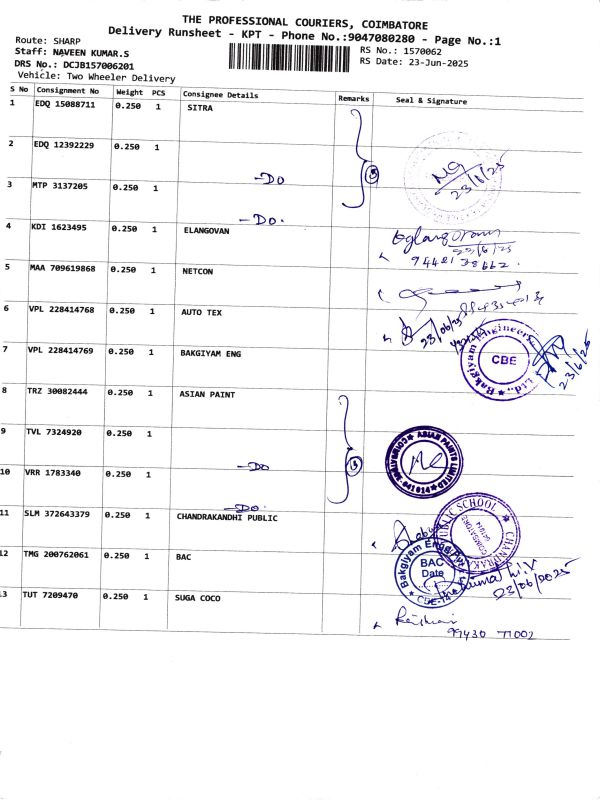 THE PROFESSIONAL COURIERS, COIMBATORE
Delivery Runsheet - KPT - Phone No.:9047080280 - Page No.:1
Route: SHARP
Staff: NAVEEN KUMAR.S
RS No.: 1570062
DRS No.: DCJB157006201
RS Date: 23-Jun-2025
Vehicle: Two Wheeler Delivery
S No Consignment No Weight PCS Consignee Details Remarks Seal & Signature
1 EDQ 15088711 0.250 1 SITRA
2 EDQ 12392229 0.250 1
-DO
23/6/25
3 MTP 3137205 0.250 1
-DO.
4 KDI 1623495 0.250 1 ELANGOVAN
5 MAA 709619868 0.250 1 NETCON
6 VPL 228414768 0.250 1 AUTO TEX
23/06/25
7 VPL 228414769 0.250 1 BAKGIYAM ENG
Bakgiyam Engineers Ltd.,
CBE
23/6/25
8 TRZ 30082444 0.250 1 ASIAN PAINT
9 TVL 7324920 0.250 1
-DO
ASIAN PAINTS LIMITED
10 VRR 1783340 0.250 1
-DO.
11 SLM 372643379 0.250 1 CHANDRAKANDHI PUBLIC
PUBLIC SCHOOL
COIMBATORE
12 TMG 200762061 0.250 1 BAC
Bakgiyam Engg
BAC
Date
23/06/2025
13 TUT 7209470 0.250 1 SUGA COCO
99430 71002